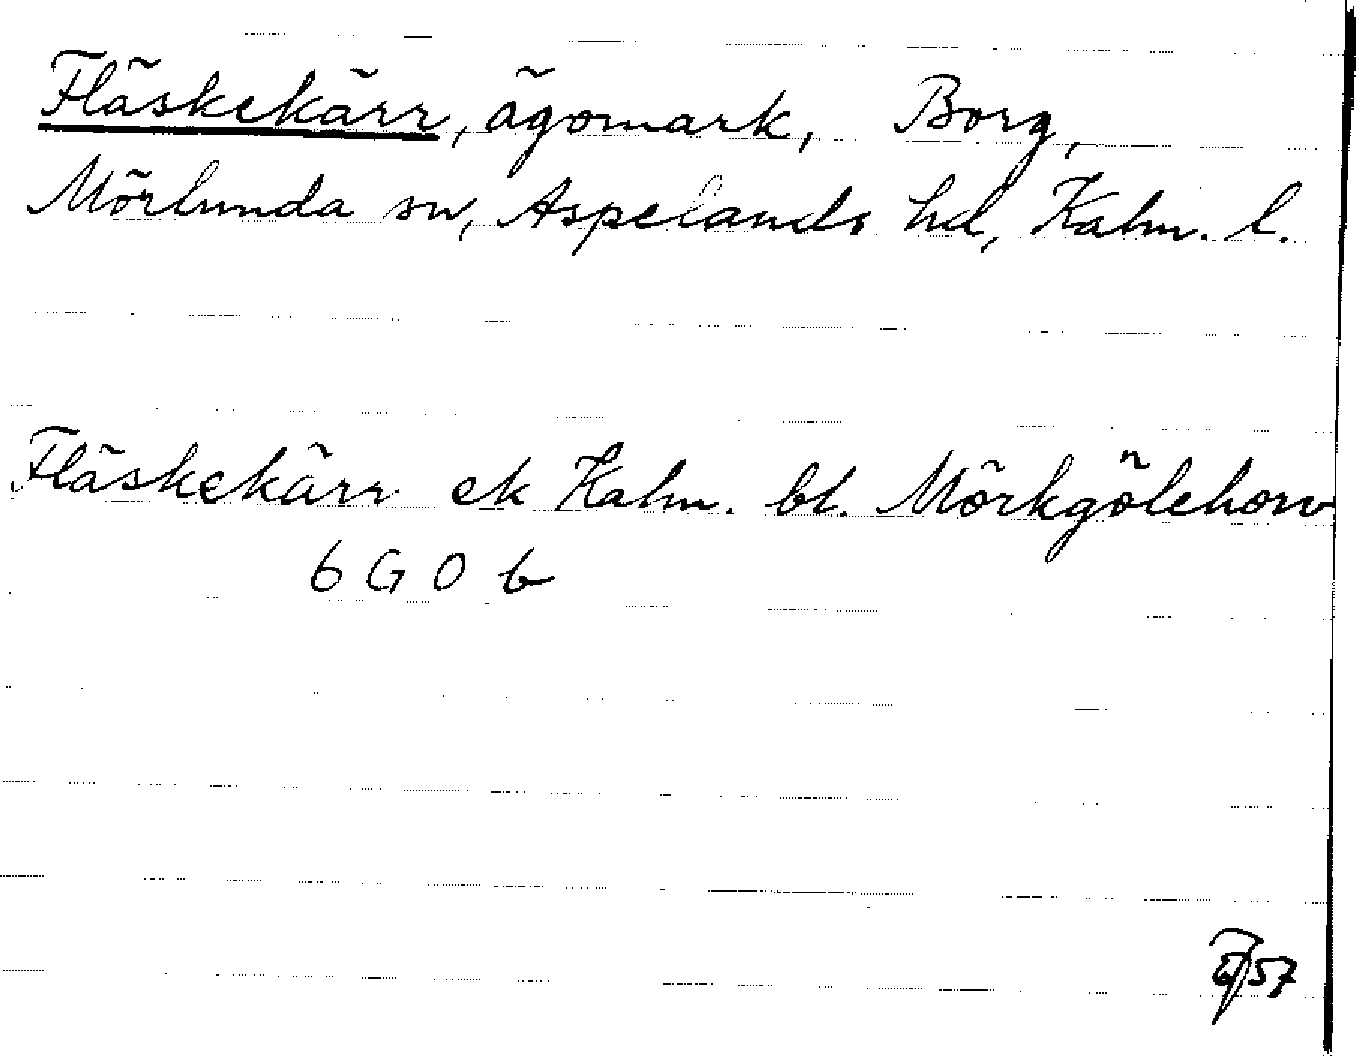 Fläskekärr, ägomark, Borg,
Mörlunda sn, Aspelands hd, Kalm. l.
Fläskekärr ek Kalm. bl. Mörkgölehorv
6 G 0 b
57